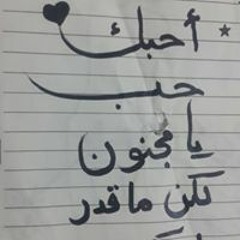 أحبك
حب
يا مجنون
لكن ماقدر